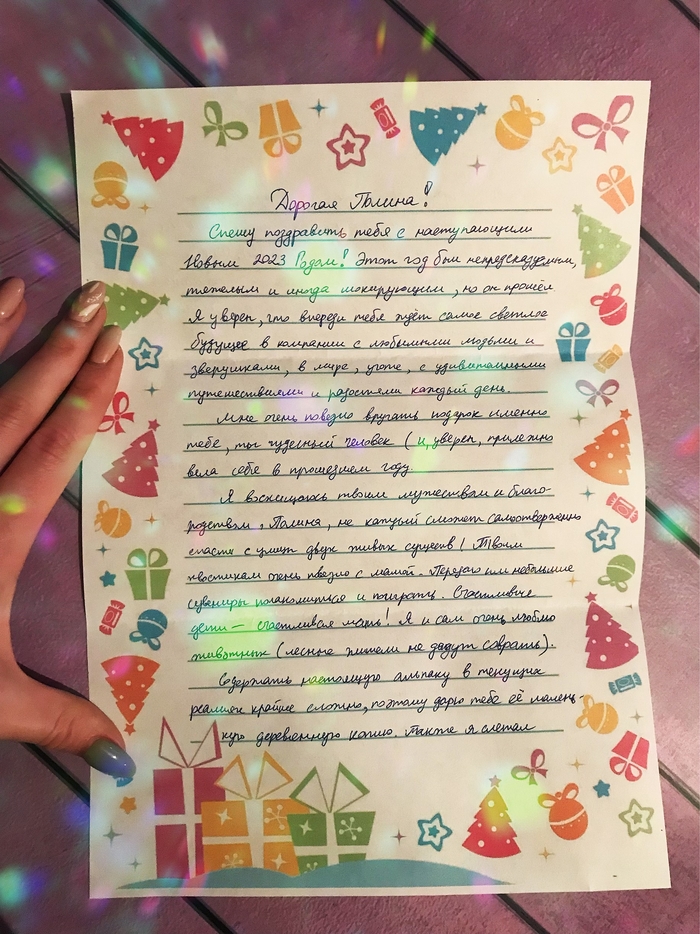 Дорогая Полина!
Спешу поздравить тебя с наступающим
Новым 2023 Годом! Этот год был непредсказуемым,
тяжелым и иногда шокирующим, но он прошёл
Я уверен, что впереди тебя ждёт самое светлое
будущее в компании с любимыми людьми и
зверушками, в мире, уюте, с удивительными
путешествиями и радостями каждый день.
Мне очень повезло вручать подарок именно
тебе, ты чудесный человек (и, уверен, прилежно
вела себя в прошедшем году.
Я восхищаюсь твоим мужеством и благо-
родством, Полина, не каждый сможет самоотверженно
спасти с улиц двух живых существ! Твоим
хвостикам очень повезло с мамой. Передаю им небольшие
сувениры полакомиться и поиграть. Счастливые
дети — счастливая мать! Я и сам очень люблю
животных (лесные жители не дадут соврать).
Содержать настоящую альпаку в текущих
реалиях крайне сложно, поэтому дарю тебе её малень-
кую деревянную копию. Также я слетал